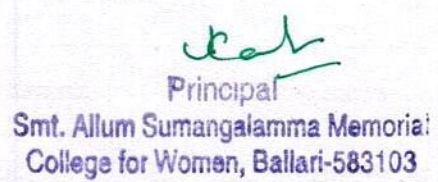 Principal
Smt. Allum Sumangalamma Memorial
College for Women, Ballari-583103